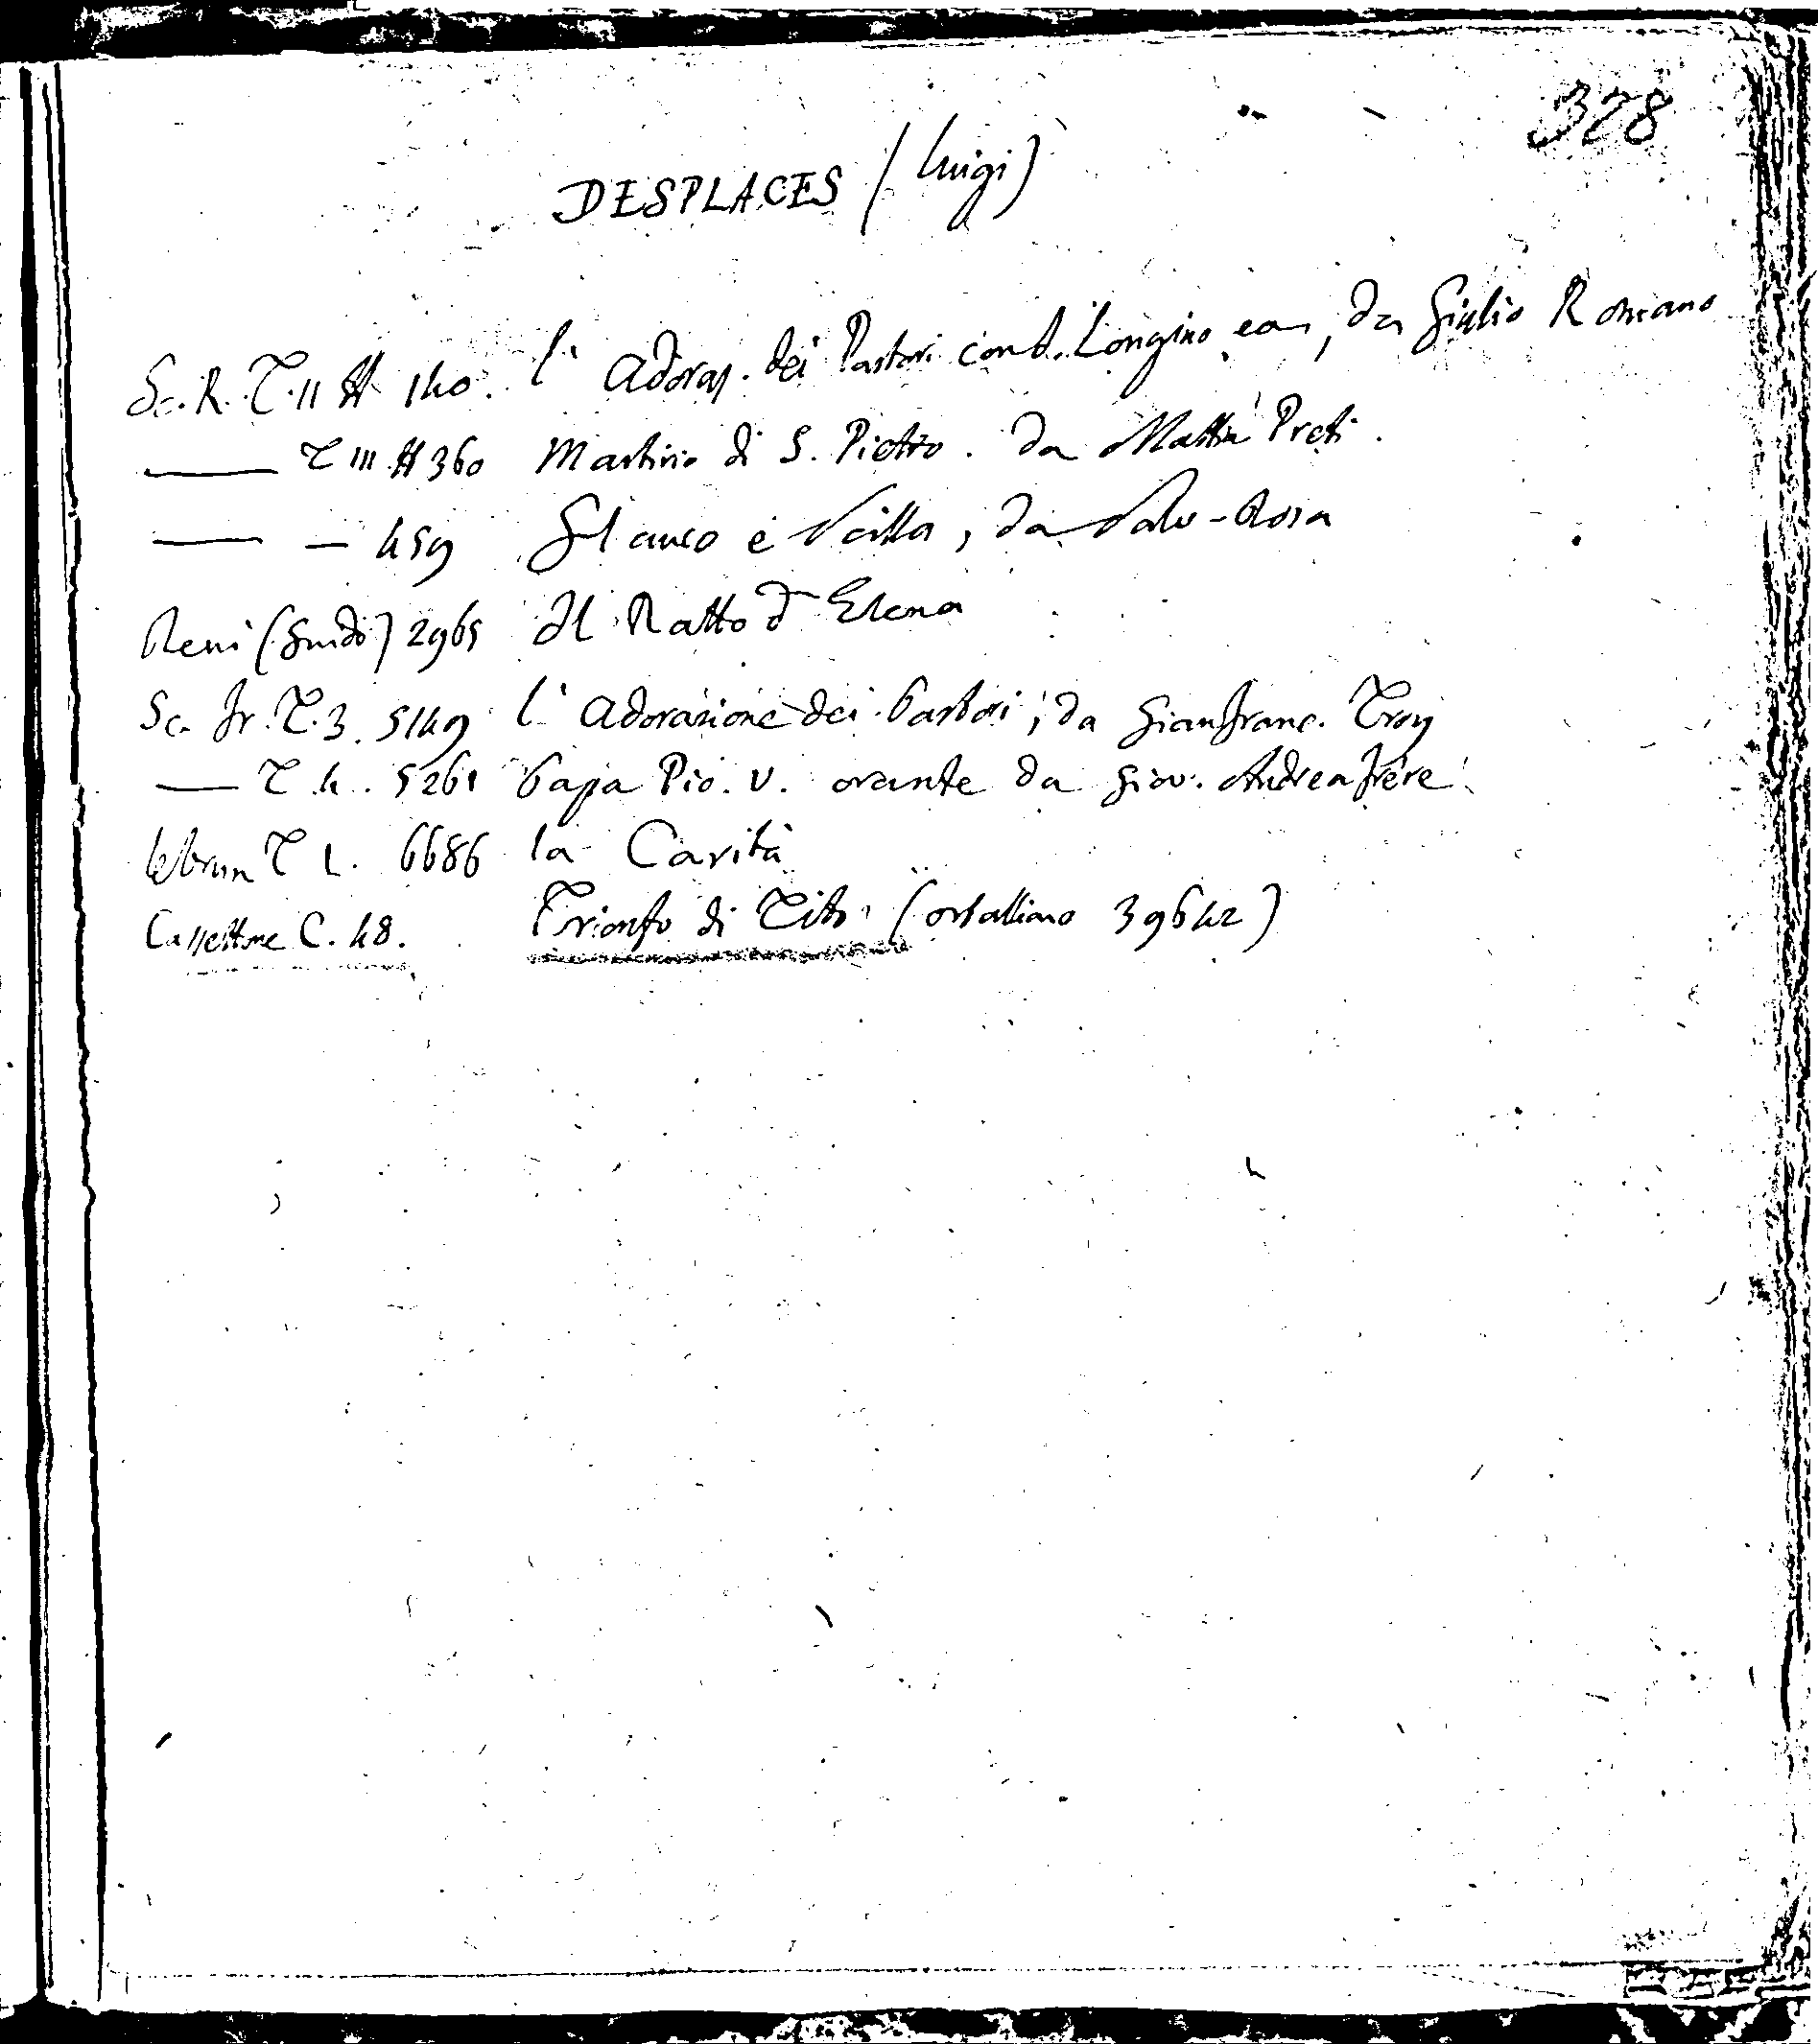 378
DESPLACES (Luigi)
Sc. R. T. II # 140. l' Adoraz. dei Pastori con S. Longino ecc., da Giulio Romano
—— T III # 360 Martirio di S. Pietro. da Mattia Preti.
—— — 459 Glauco e Scilla, da Salv-Rosa
Reni (Guido) 2965 Il Ratto d' Elena
Sc. Fr. T. 3. 5149 l' Adorazione dei Pastori, da Gianfranc. Troy
—— T. 4. 5261 Papa Pio. V. orante da Giov. Andrea frere
lebrun T 1. 6686 la Carità
Cassettone C. 48. Trionfo di Tito (ortalliano 39642)